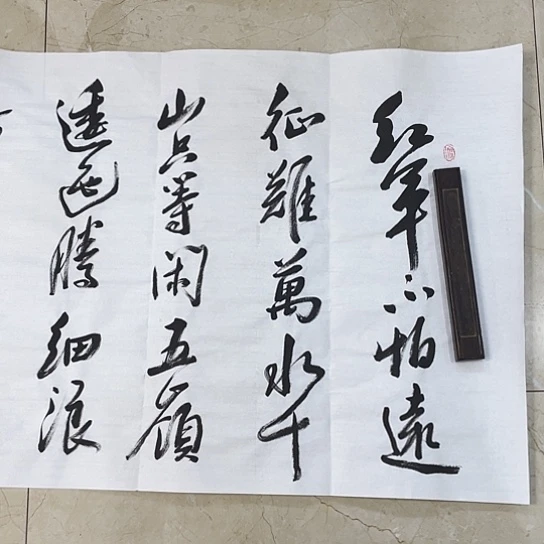 红军不怕远
征難萬水千
山只等闲五嶺
逶迤腾细浪